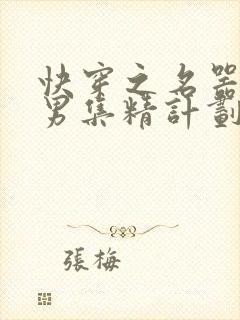 快穿之名器
男集精計劃
張梅